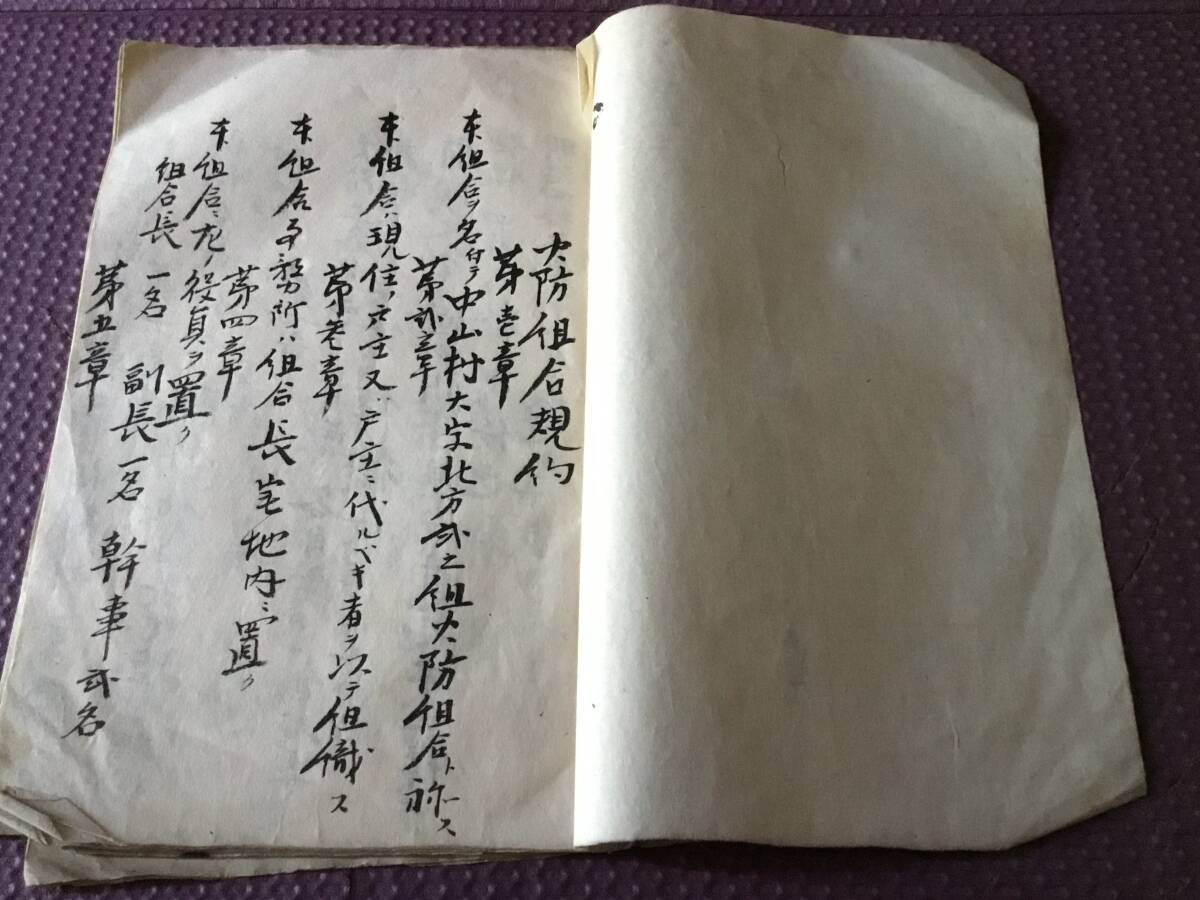 火防組合規約
第壱章
本組合ヲ名付テ中山村大字北方弐之組火防組合ト称ス
第弐章
本組合ハ現住ノ戸主又ハ戸主ニ代ルベキ者ヲ以テ組織ス
第参章
本組合事務所ハ組合長宅地内ニ置ク
第四章
本組合ニ左ノ役員ヲ置ク
組合長 一名 副長 一名 幹事 弐名
第五章